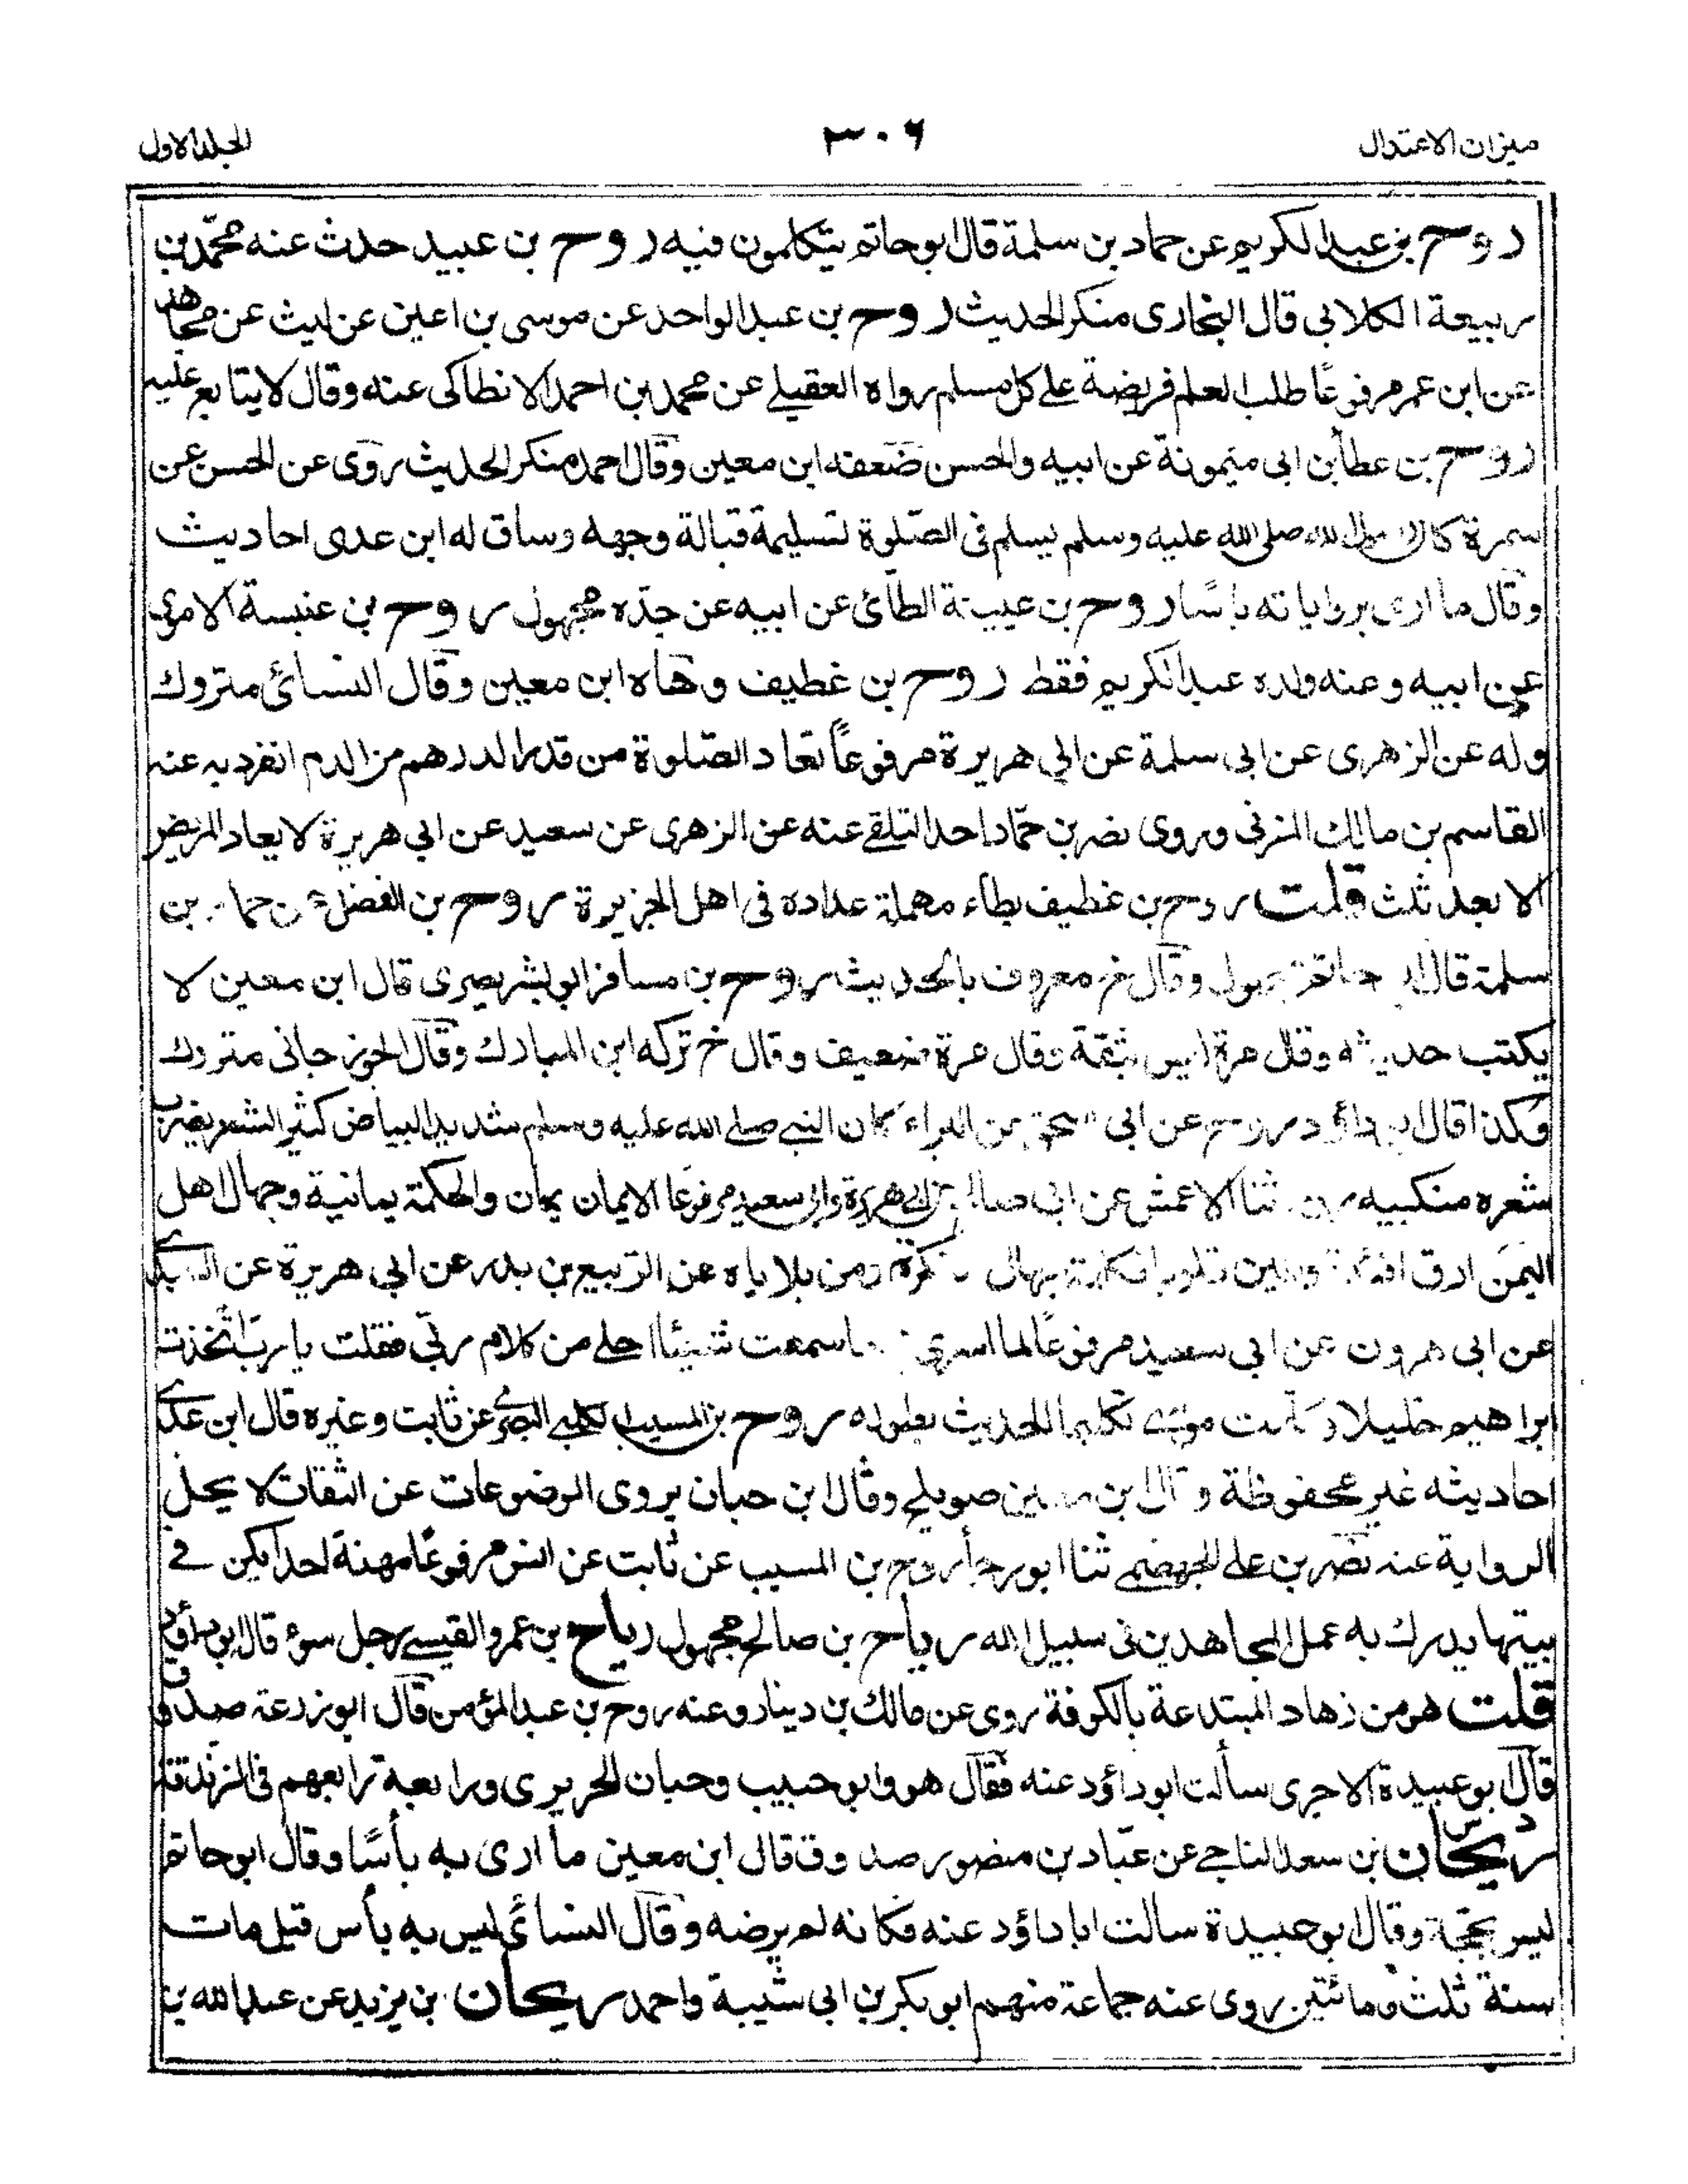 ميزان الاعتدال
٣٠٦
الجلد الاول
روح بن عبد الكريم عن حماد بن سلمة قال ابو حاتم يتكلمون فيه روح بن عبيد حدث عنه محمّد بن
ربيعة الكلابى قال البخارى منكر الحديث روح بن عبد الواحد عن موسى بن اعين عن ليث عن مجاهد
عن ابن عمر مرفوعًا طلب العلم فريضة على كل مسلم رواه العقيلے عن محمد بن احمد الانطاكى عنه وقال لا يتابع عليه
روح بن عطأ بن ابى ميمونة عن ابيه والحسن ضعفه ابن معين وقال احمد منكر الحديث روى عن الحسن عن
سمرة كان رسول الله صلى الله عليه وسلم يسلم فى الصّلوة تسليمة قبالة وجهه وساق له ابن عدى احاديث
وقال ما ارى برواياته باسًا روح بن عيينة الطائ عن ابيه عن جدّه مجهول روح بن عنبسة الاموى
عن ابيه وعنه ولده عبد الكريم فقط روح بن غطيف وهاه ابن معين وقال النسائ متروك
وله عن الزهرى عن ابى سلمة عن ابي هريرة مرفوعًا تعاد الصّلوة من قدر الدرهم من الدم انفرد به عنه
القاسم بن مالك المزنى وروى نصر بن حمّاد احد التلقے عنه عن الزهرى عن سعيد عن ابي هريرة لا يعاد المريض
الا بعد ثلث قلت روح بن غطيف بطاء مهملة عداده فى اهل الجزيرة روح بن الفضل عن حماد بن
سلمة قال ابو حاتم مجهول وقال غر معروف بالحديث روح بن مسافر ابو بشر بصرى قال ابن معين لا
يكتب حديثه وقال مرة ليس بثقة وقال مرة ضعيف وقال خ تركه ابن المبارك وقال الجوزجانى متروك
وكذا قال ابو داؤد روح عن ابى اسحق عن البراء كان النبے صلے الله عليه وسلم شديد البياض كثير الشعر يضرب
شعره منكبيه روح ثنا الاعمش عن ابى صالح عن ابى هريرة وابى سعيد مرفوعًا الايمان يمان والحكمة يمانية وجهال اهل
اليمن ارق افئدة والين قلوبا فكلمة جهال منكرة ومن بلاياه عن الرّبيع بن بدر عن ابي هريرة عن
عن ابى هرون عن ابى سعيد مرفوعًا لما اسرى ما سمعت شيئًا احلے من كلام ربّى فقلت يا رب اتّخذت
ابراهيم خليلا وكلمت موسے تكليما الحديث بطوله روح بن المسيب الكلبے البصرے عن ثابت وغيره قال ابن عدے
احاديثه غير محفوظة وقال ابن معين صويلح وقال ابن حبان يروى الموضوعات عن الثقات لا يحل
الرواية عنه نصر بن علے الجهضمے ثنا ابو رجأ روح بن المسيب عن ثابت عن انس مرفوعًا مهنة احداكن فے
بيتها يدرك به عمل المجاهدين فى سبيل الله رياح بن صالح مجهول رياح بن عمرو القيسے رجل سوء قال ابو داؤد
قلت هو من زهاد المبتدعة بالكوفة روى عن مالك بن دينار وعنه روح بن عبد المؤمن قال ابو زرعة صدوق
قال ابو عبيدة الاجرى سألت ابو داؤد عنه فقال هو وابو حبيب وحبان الحريرى ورابعة ترابعهم فى الزندقة
د س
ريحان بن سعد الناجے عن عبّاد بن منصور صدوق قال ابن معين ما ارى به بأسًا وقال ابو حاتم
ليس بحجّة وقال ابو عبيدة سالت ابا داؤد عنه فكانه لم يرضه وقال النسائ ليس به بأس قيل مات
سنة ثلث ومائتين روى عنه جماعة منهم ابو بكر بن ابى شيبة واحمد ريحان بن يزيد عن عبد الله بن